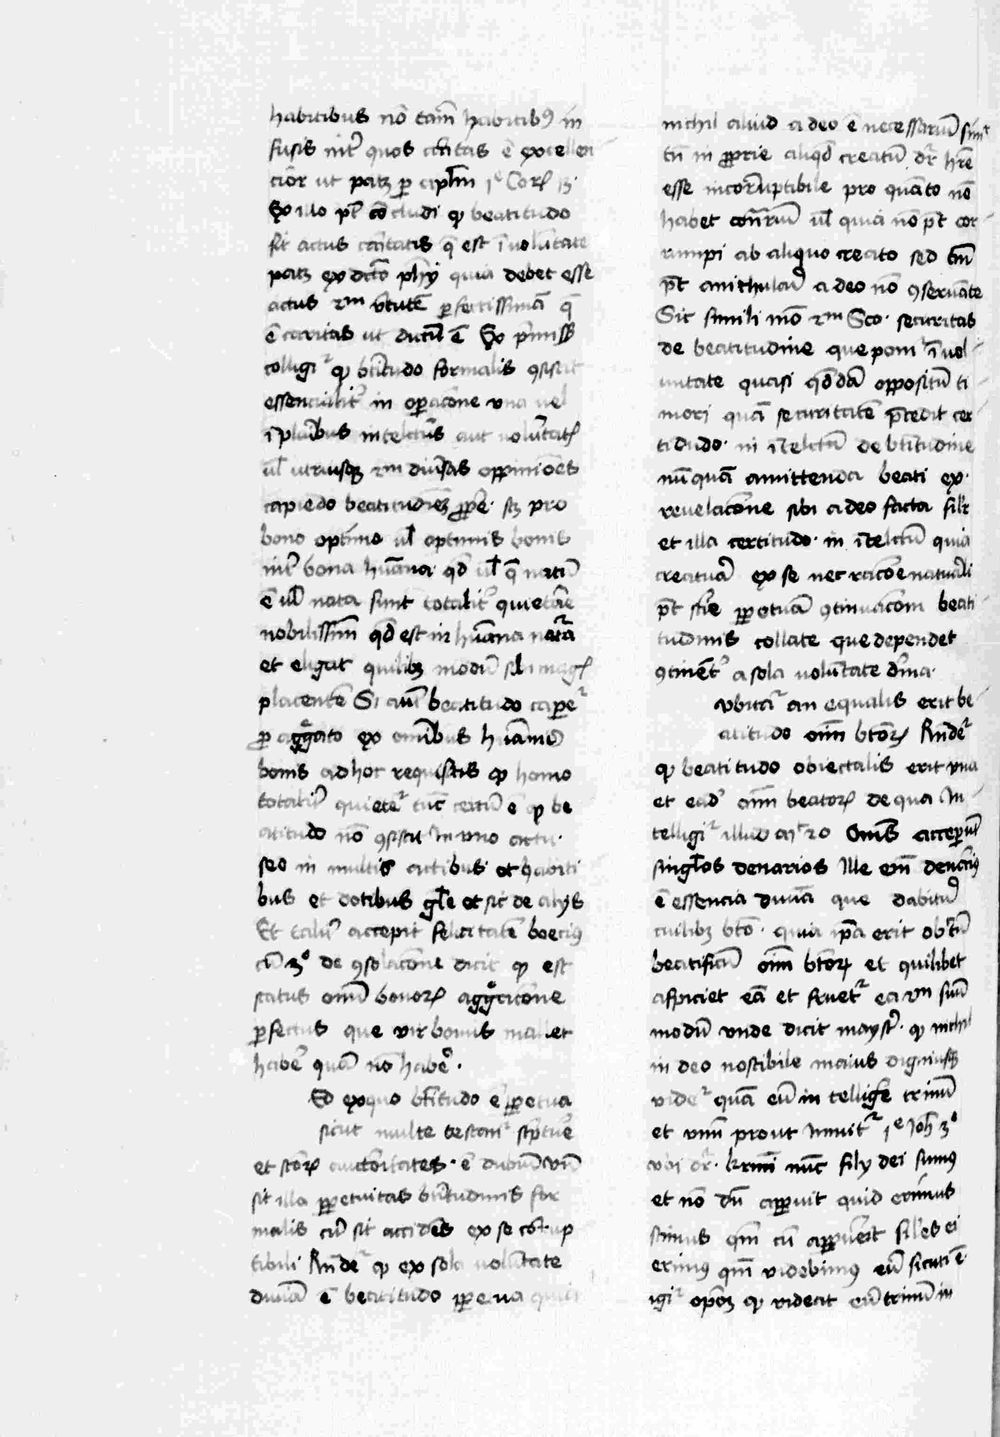 habitibus nō tam̄ habitibꝫ in
fusis int̉ quos caritas ē excellen
cior ut patꝫ per aplm̄ 1ͤ Corꝝ 13.
Ex illo pt̄ cōcludi ꝙ beatitudo
sit actus caritatis q̄ est ī volūtate
patꝫ ex dictō phy̅ quia debet esse
actus 2m v̄tutē perfectissimā q̄
ē caritas ut dictū ē Ex p̄missꝫ
colligiᷣ ꝙ bt̄itudo formalis ꝯsistit
essencialit̉ in oꝑacōne una vel
ī pluribus intelcūs aut volūtatꝫ
vl̄ utriusqꝫ 2m diūsas oppiniōes
capiēdo beatitudinē ꝓpͥe. sꝫ pro
bono optimo vl̄ optimis bonis
int̉ bona hūana qd̄ vl̄ q̄ natū
ē vl̄ nata sunt totalit̉ quietare
nobilissim̄ qd̄ est in hūana nat̄a
et eligat quilibꝫ modū sibi magꝫ
placentē Si aūt beatitudo capereᷣ
ꝓ aggͤgato ex omībus hūanis
bonis ad hoc requisitis ꝙ homo
totalit̉ quieteᷣ tūc certū ē ꝙ be
atitudo nō ꝯsistit in uno actu.
sed in multis actibus et habiti
bus et dotibus gl̄e et sic de alijs
Et talit̉ accepit felicitatē boeciꝰ
cū 3º de ꝯsolacōne dicit ꝙ est
status omīū bonorꝝ aggͤgacōne
perfectus que vir bonus mallet
habē quā nō habē.
Ed exquo bt̄itudo ē ꝑpetua
sicut multe testant̉ sc̄ptūe
et sc̄orꝝ auctoritates. ē dubiū vn̄
sit illa ꝑpetuitas bt̄itudinis for
malis cū sit accidēs ex se corrup
tibili Rn̄deᷣ ꝙ ex sola volūtate
diuīa ē beatitudo ꝑpetua quia
nichil aliud a deo ē necessariū simᵗ
tn̄ in ꝓprie aliqd̄ creatū dr̄ hr̄e
esse incorruptibile pro quāto nō
habet cont̄riū vl̄ quia nō pt̄ cor
rumpi ab aliquo creato sed tm̄
pt̄ anichilari a deo nō ꝯseruāte
Sic simili mō 2m Sco. securitas
de beatitudine que poniᷣ ī vol
untate quasi qd̄dā oppositū ti
mori quā securitatē p̄cedit cer
titudo. in ītelctū de bt̄itudine
nūquā amittenda beati ex.
reuelacōne sibi a deo facta silr̄
et illa certitudo. in ītelctū quia
creatura ex se nec racōe naturali
pt̄ scīe ꝑpetuā ꝯtinuacōem beati
tudinis collate que dependet
ꝯtinent̉ a sola volūtate diuīa.
vbitaᷣ an equalis erit be
atitudo om̄ btōrꝝ Rn̄deᷣ
ꝙ beatitudo obiectalis erit una
et eadē om̄ beatorꝝ de qua in
telligiᷣ illud mᵗ 20 Om̄s acceperūt
singlos denarios Ille em̄ denariꝰ
ē essencia diuīa que dabitur
cuilibꝫ btō. quia ipa erit obtū
beatificū om̄ btōrꝝ et quilibet
aspiciet eā et frueteᷣ ea 2m suū
modū unde dicit maysᵗ. ꝙ nichil
in deo noscibile maius digniusqꝫ
videᷣ quā eū intelligē trinū
et unū prout innuitᷣ 1ͤ Joh̄ 3º
ubi dr̄. krmi nūc filij dei sumꝰ
et nō dū apparuit quid erimus
scimus qm̄ cū apparuerit siles ei
erimꝰ qm̄ videbimꝰ eū sicuti ē
igiᷣ opꝫ ꝙ videat eū trinū in